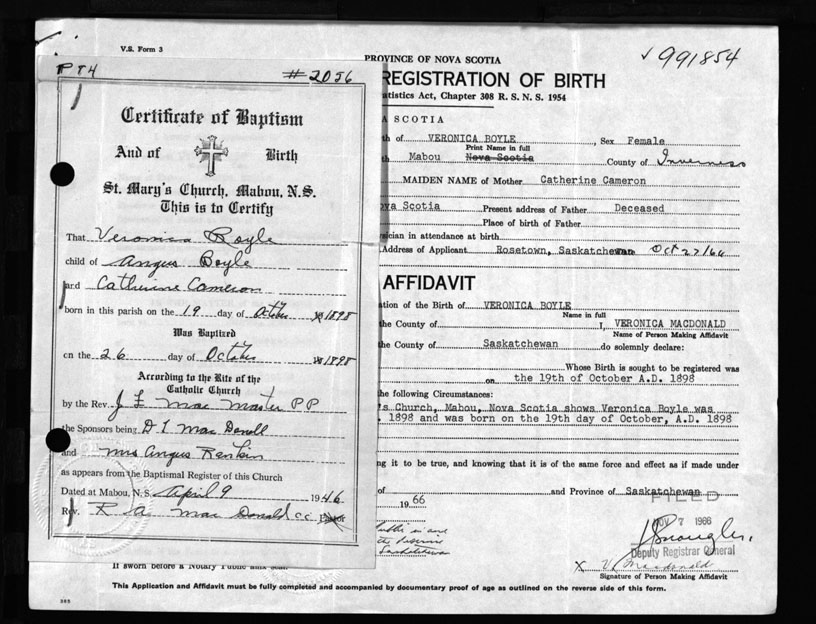 V.S. Form 3
PROVINCE OF NOVA SCOTIA
✓ 991854
REGISTRATION OF BIRTH
tatistics Act, Chapter 308 R. S. N. S. 1954
A SCOTIA
th of VERONICA BOYLE, Sex Female
Print Name in full
th Mabou Nova Scotia County of Inverness
MAIDEN NAME of Mother Catherine Cameron
va Scotia Present address of Father Deceased
Place of birth of Father
sician in attendance at birth
Address of Applicant Rosetown, Saskatchewan Oct 27/66
AFFIDAVIT
ation of the Birth of VERONICA BOYLE
Name in full
the County of I, VERONICA MACDONALD
Name of Person Making Affidavit
the County of Saskatchewan do solemnly declare:
Whose Birth is sought to be registered was
on the 19th of October A.D. 1898
he following Circumstances:
's Church, Mabou, Nova Scotia shows Veronica Boyle was
. 1898 and was born on the 19th day of October, A.D. 1898
ng it to be true, and knowing that it is of the same force and effect as if made under
of and Province of Saskatchewan
1966
FILED
NOV 7 1966
Deputy Registrar General
Saskatchewan
x V. Macdonald
Signature of Person Making Affidavit
If sworn before a Notary Public affix seal.
This Application and Affidavit must be fully completed and accompanied by documentary proof of age as outlined on the reverse side of this form.
P T4 #2056
Certificate of Baptism
And of Birth
St. Mary's Church, Mabou, N.S.
This is to Certify
That Veronica Boyle
child of Angus Boyle
and Catherine Cameron
born in this parish on the 19 day of October 1898
Was Baptized
on the 26 day of October 1898
According to the Rite of the
Catholic Church
by the Rev. J F Mac Master P P
the Sponsors being D L Mac Donell
and Mrs Angus Rankin
as appears from the Baptismal Register of this Church
Dated at Mabou, N.S. April 9 1946
Rev. R A Mac Donald cc Pastor